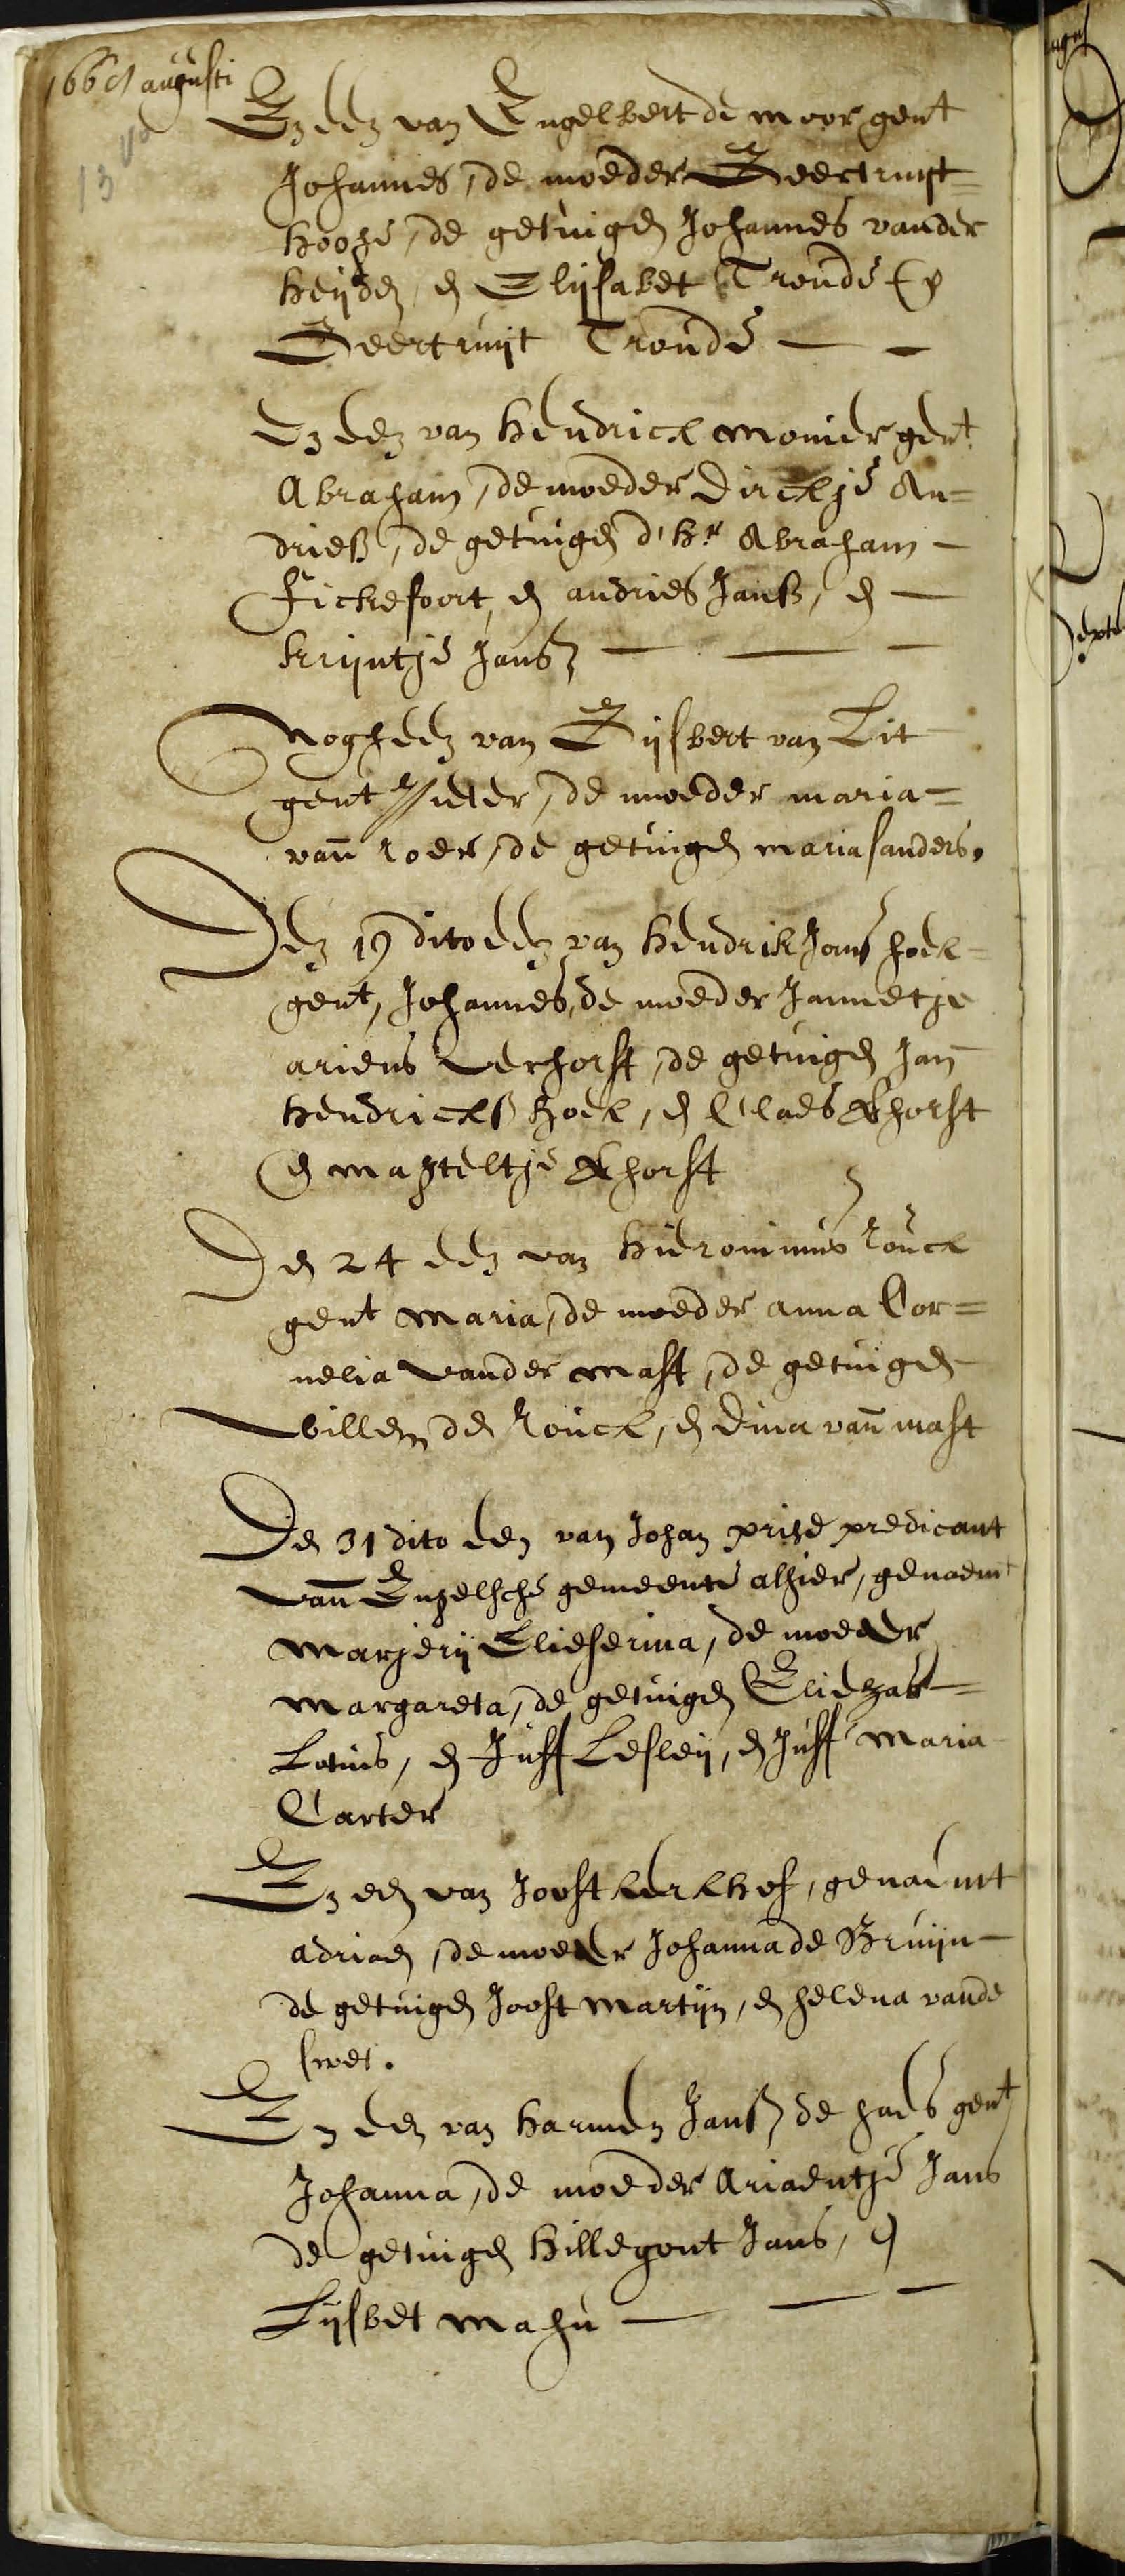 1661 augusti
13 vo
En een van Engelbert de moor gent
Johannes, de moeder Geertruijt
hooge, de getuigen Johannes vander
heijden, en Elijsabet Tronde en
Geertruijt Tronde
En een van Hendrick monier gent
Abraham, de moeder Dirckje An=
drieß, de getuigen d'hr Abraham
Fickefoort, en andries Janß, en
krijntje Jansz
Nogh een van Gijsbert van Lit
gent Pieter, de moeder maria=
van roer, de getuigen maria sanders.
Den 19 dito een van Hendrik Jans hoek
gent, Johannes, de moeder Jannetje
ariens Verhorst, de getuigen Jan
Hendricks hoek, en Claes horst
en maghteltje horst
Den 24 een van Hieronimus Rouck
gent Maria, de moeder anna Cor=
nelia vander mast, de getuigen
Willem de Rouck, en Dina van mast
Den 31 dito een van Johan prise predicant
van Engelsche gemeente alhier, genaemt
Marjerij Elieserina, de moeder
margareta, de getuigen Eliezar
Lotius, en Juff Lesleij, en Juff Maria
Carter
En een van Joost kerkhof, genaemt
adriaen, de moeder Johanna de Bruijn
de getuigen Joost Martijn, en helena vande
swet.
En een van Harmen Jansz de haes gent
Johanna, de moeder Ariaentje Jans
de getuigen Hillegont Jans, en
Lijsbet Mahu